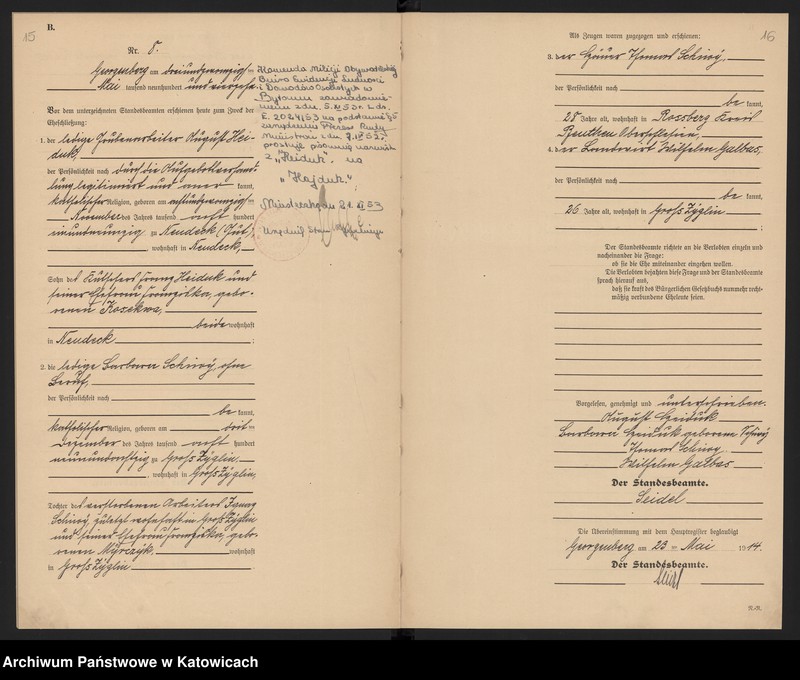 B.
15
Nr. 8.
Georgenberg am dreiundzwanzigsten
Mai tausend neunhundert und vierzehn.
Vor dem unterzeichneten Standesbeamten erschienen heute zum Zweck der
Eheschließung:
1. der ledige Grubenarbeiter August Hei-
duk,
der Persönlichkeit nach durch die Aufgebotsverhand-
lung legitimiert und aner kannt,
katholischer Religion, geboren am
November des Jahres tausend acht hundert
einundneunzig zu Neudeck,
, wohnhaft in Neudeck,
Sohn des Kutschers Franz Heiduk und
seiner Ehefrau Franziska, gebo-
renen Kosekwa,
beide wohnhaft
in Neudeck ;
2. die ledige Barbara Schiroy, ohne
Beruf,
der Persönlichkeit nach
be kannt,
katholischer Religion, geboren am dritten
Dezember des Jahres tausend acht hundert
neunundachtzig zu Groß Zyglin
, wohnhaft in Groß Zyglin,
Tochter des verstorbenen Arbeiters
Schiroy, zuletzt wohnhaft in Groß Zyglin
und seiner Ehefrau Franziska, gebo-
renen Myrczyk, wohnhaft
in Groß Zyglin
Komenda Milicji Obywatelskiej
Biuro Ewidencji Ludności
i Dowodów Osobistych w
Bytomiu zawiadomie-
niem z dn.
E. 2024/53 na podstawie §5
zarządzenia Prezesa Rady
Ministrów z dn.
prostuje pisownię nazwiska
z "Heiduk" na
"Hajduk."
Miasteczko dn. 21. XI 53
Urzędnik Stanu Cywilnego
16
Als Zeugen waren zugezogen und erschienen:
3. der Häuer Thomas Schiroy,
der Persönlichkeit nach
be kannt,
28 Jahre alt, wohnhaft in Rossberg Kreis
Beuthen Oberschlesien,
4. der Landwirt Wilhelm Galbas,
der Persönlichkeit nach
be kannt,
26 Jahre alt, wohnhaft in Groß Zyglin
;
Der Standesbeamte richtete an die Verlobten einzeln und
nacheinander die Frage:
ob sie die Ehe miteinander eingehen wollen.
Die Verlobten bejahten diese Frage und der Standesbeamte
sprach hierauf aus,
daß sie kraft des Bürgerlichen Gesetzbuchs nunmehr recht-
mäßig verbundene Eheleute seien.
Vorgelesen, genehmigt und unterschrieben.
August Heiduk
Barbara Heiduk geborene Schiroy
Thomas Schiroy
Wilhelm Galbas
Der Standesbeamte.
Seidel
Die Übereinstimmung mit dem Hauptregister beglaubigt
Georgenberg am 23 ten Mai 1914.
Der Standesbeamte.
Archiwum Państwowe w Katowicach